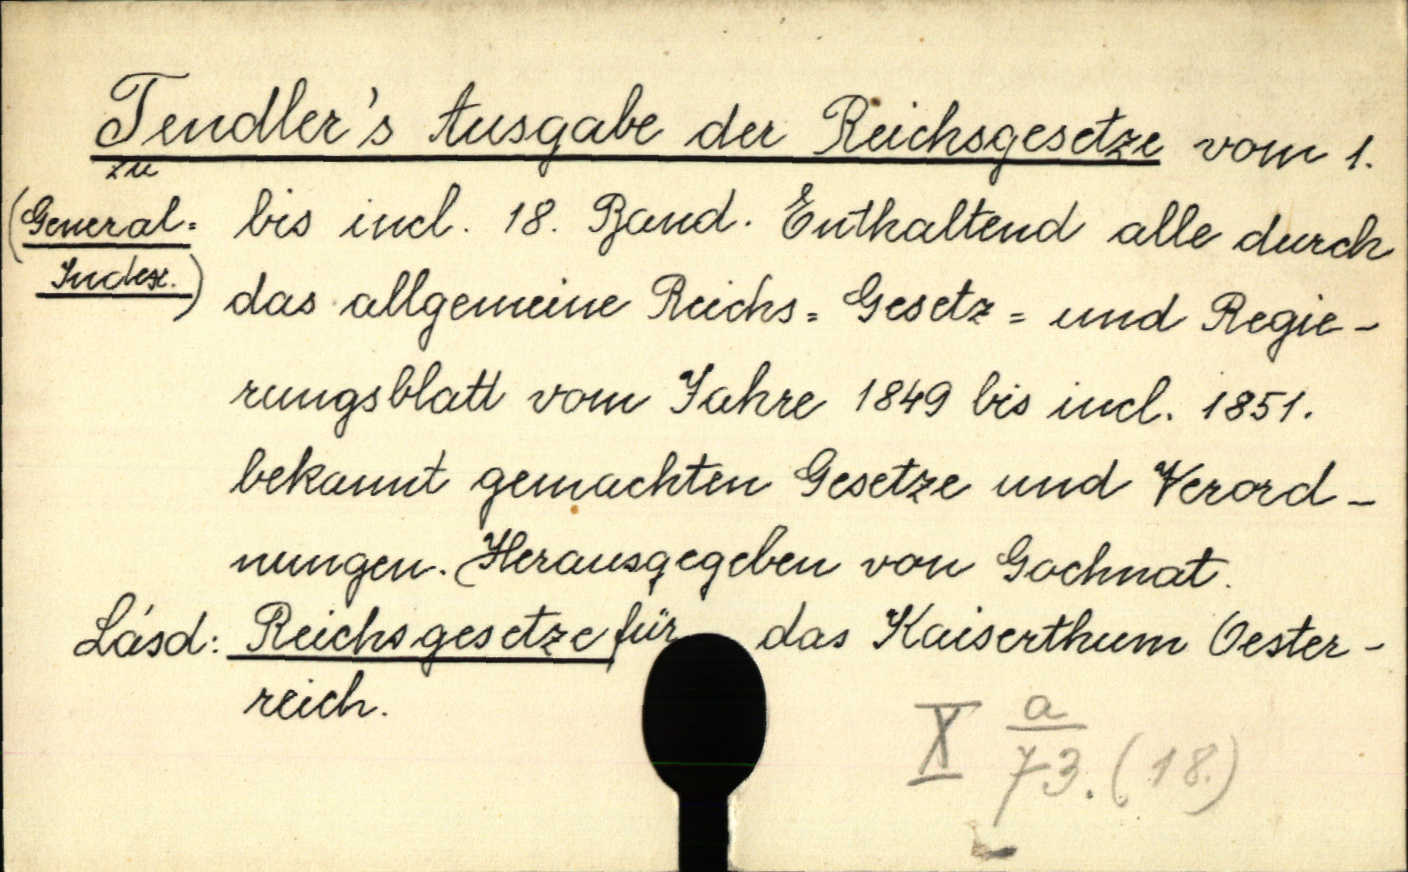 Tendler's Ausgabe der Reichsgesetze vom 1.
zu
(General= bis incl. 18. Band. Enthaltend alle durch
Index.) das allgemeine Reichs= Gesetz= und Regie-
rungsblatt vom Jahre 1849 bis incl. 1851.
bekannt gemachten Gesetze und Verord-
nungen. Herausgegeben von Gochnat.
Lásd: Reichsgesetze für das Kaiserthum Oester-
reich.
X a/73. (18.)